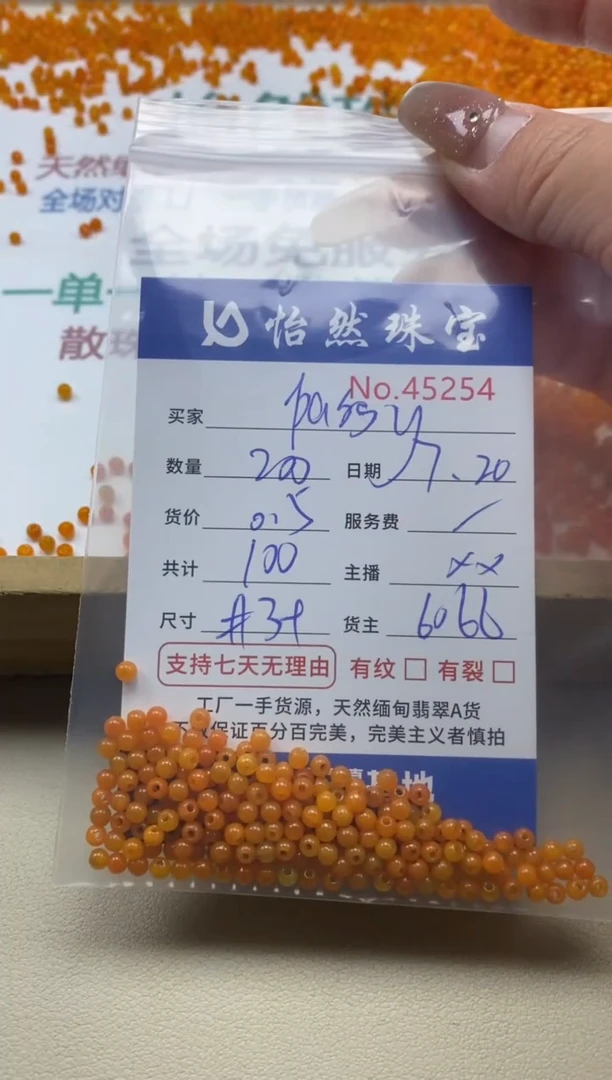 天然缅
全场对
全场免服
一单一
散珠
怡然珠宝
No.45254
买家 patty
数量 200 日期 7.20
货价 0.5 服务费 /
共计 100 主播 xx
尺寸 #3+ 货主 6066
支持七天无理由 有纹 □ 有裂 □
工厂一手货源，天然缅甸翡翠A货
保证百分百完美，完美主义者慎拍
基地